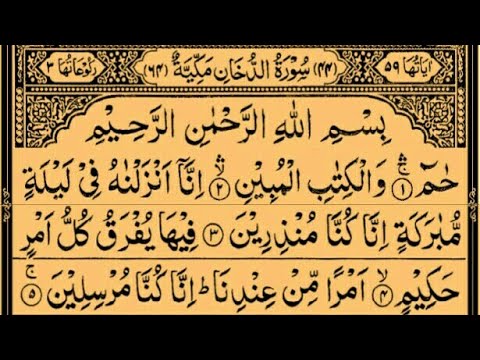 اٰيَاتُهَا ٥٩ (٤٤) سُوْرَةُ الدُّخَانِ مَكِّيَّةٌ (٦٤) رُكُوْعَاتُهَا ٣
بِسْمِ اللهِ الرَّحْمٰنِ الرَّحِيْمِ
حٰمٓ ۚۛ ۝١ وَالْكِتٰبِ الْمُبِيْنِ ۙۛ ۝٢ اِنَّاۤ اَنْزَلْنٰهُ فِيْ لَيْلَةٍ
مُّبٰرَكَةٍ اِنَّا كُنَّا مُنْذِرِيْنَ ۝٣ فِيْهَا يُفْرَقُ كُلُّ اَمْرٍ
حَكِيْمٍ ۙ ۝٤ اَمْرًا مِّنْ عِنْدِنَا ؕ اِنَّا كُنَّا مُرْسِلِيْنَ ۚ ۝٥